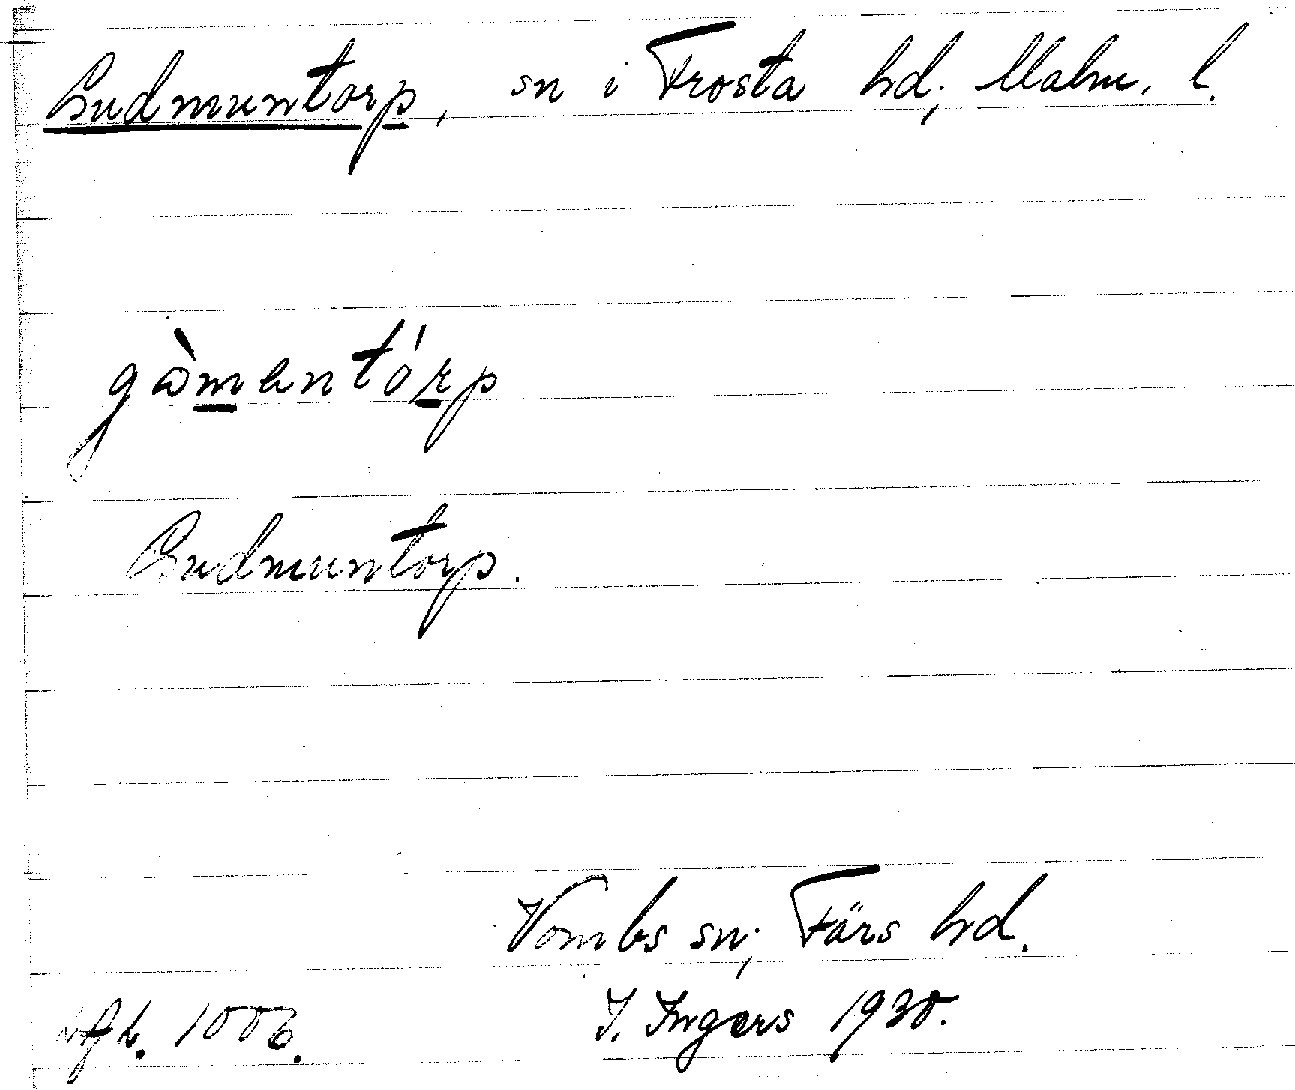 Gudmuntorp, sn i Frosta hd, Malm. l.
gòmentórp
Gudmuntorp.
Vombs sn, Färs hd.
I. Ingers 1930.
1006.